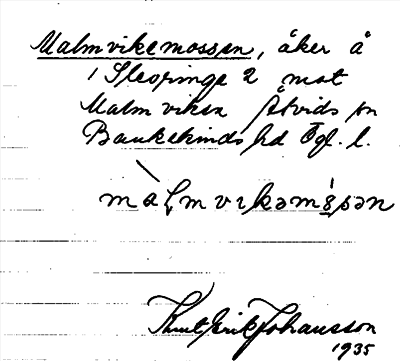 Malmvikemossen, åker å
1 Skoringe 2 mot
Malmviken Åtvids sn
Bankekinds hd Ögl. l.
Knut Erik Johansson
1935